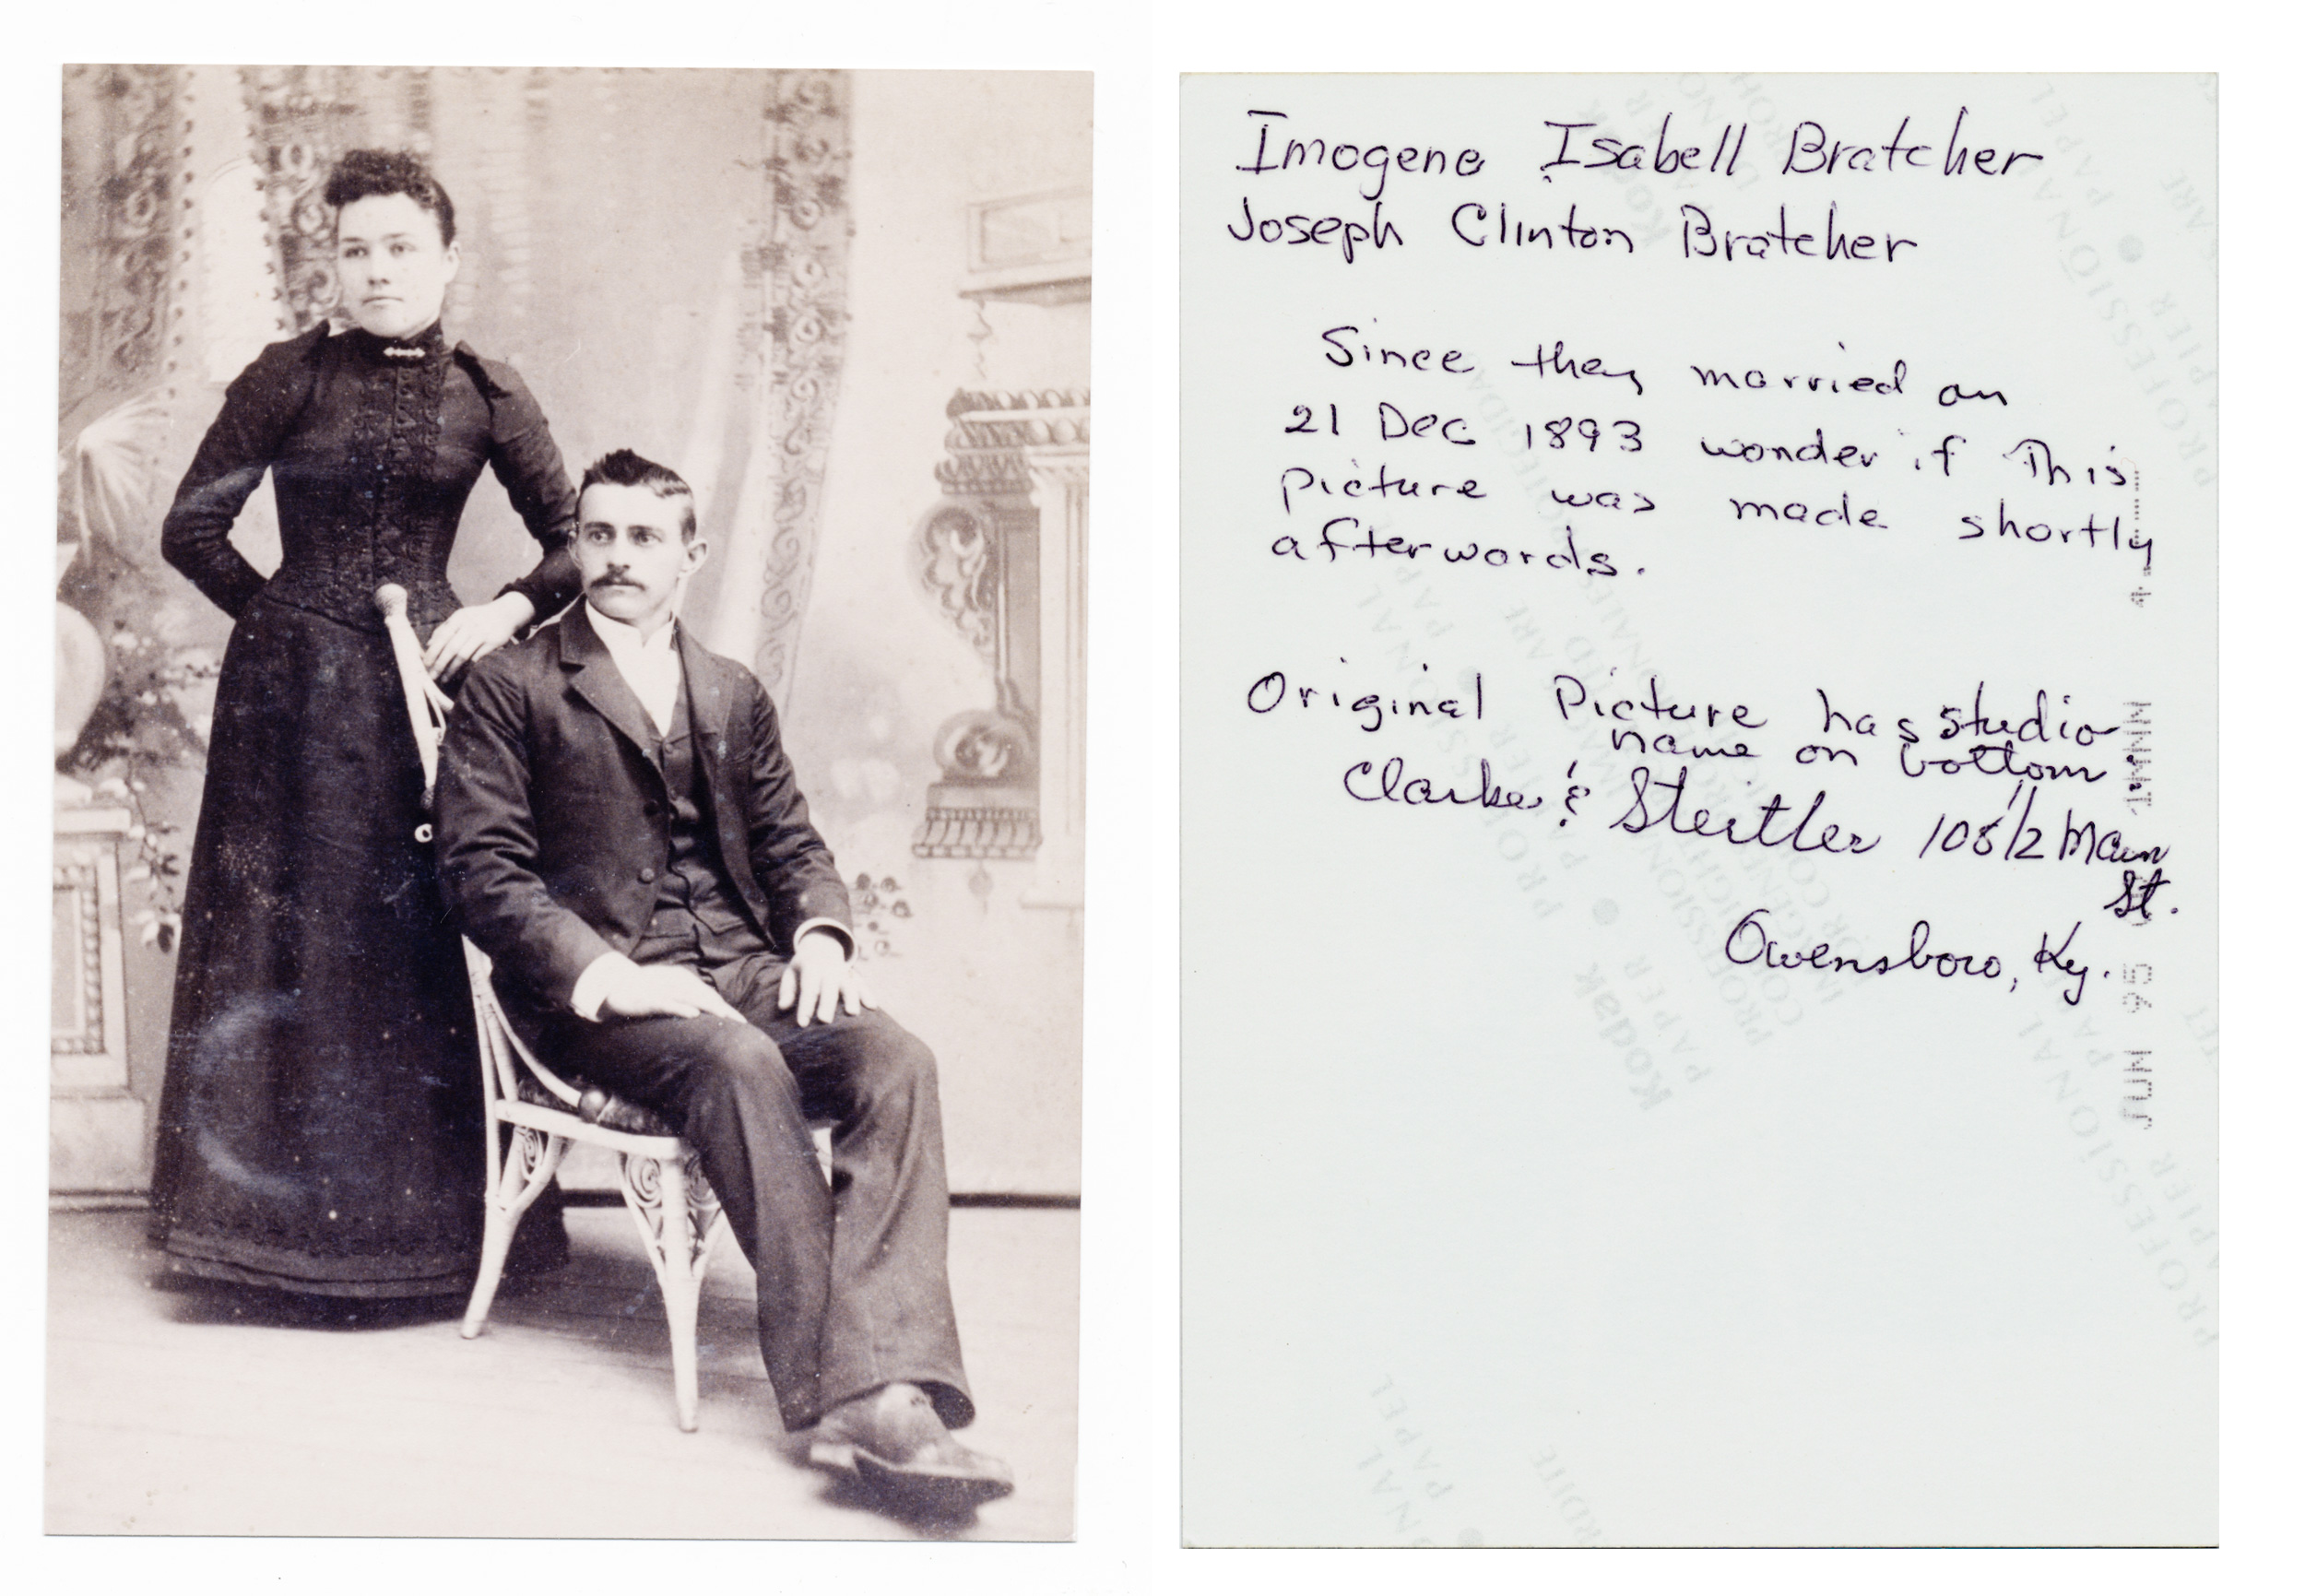 Imogene Isabell Bratcher
Joseph Clinton Bratcher
Since they married on
21 Dec 1893 wonder if This
picture was made shortly
afterwords.
Original Picture has studio
name on bottom
Clarke & Steitler 108 1/2 Main
St.
Owensboro, Ky.
JUN 95
Kodak
PAPER
PROFESSIONAL
PAPIER
PAPEL